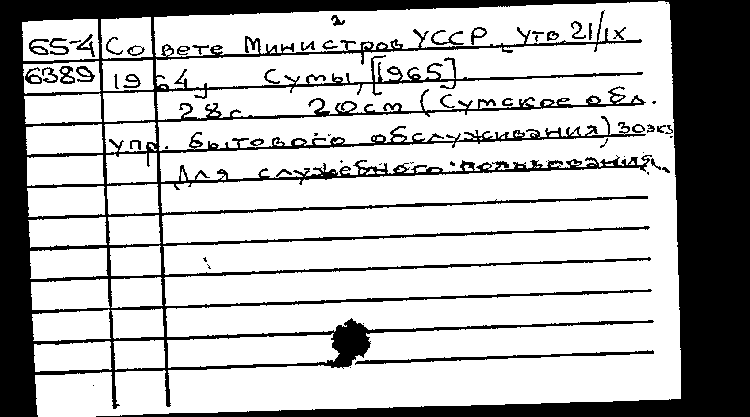 2
65-4 Совете Министров УССР. Утв. 21/IX
6389 1964, Сумы, [1965].
28с. 20см (Сумское обл.
упр. бытового обслуживания) 30экз
Для служебного пользования.